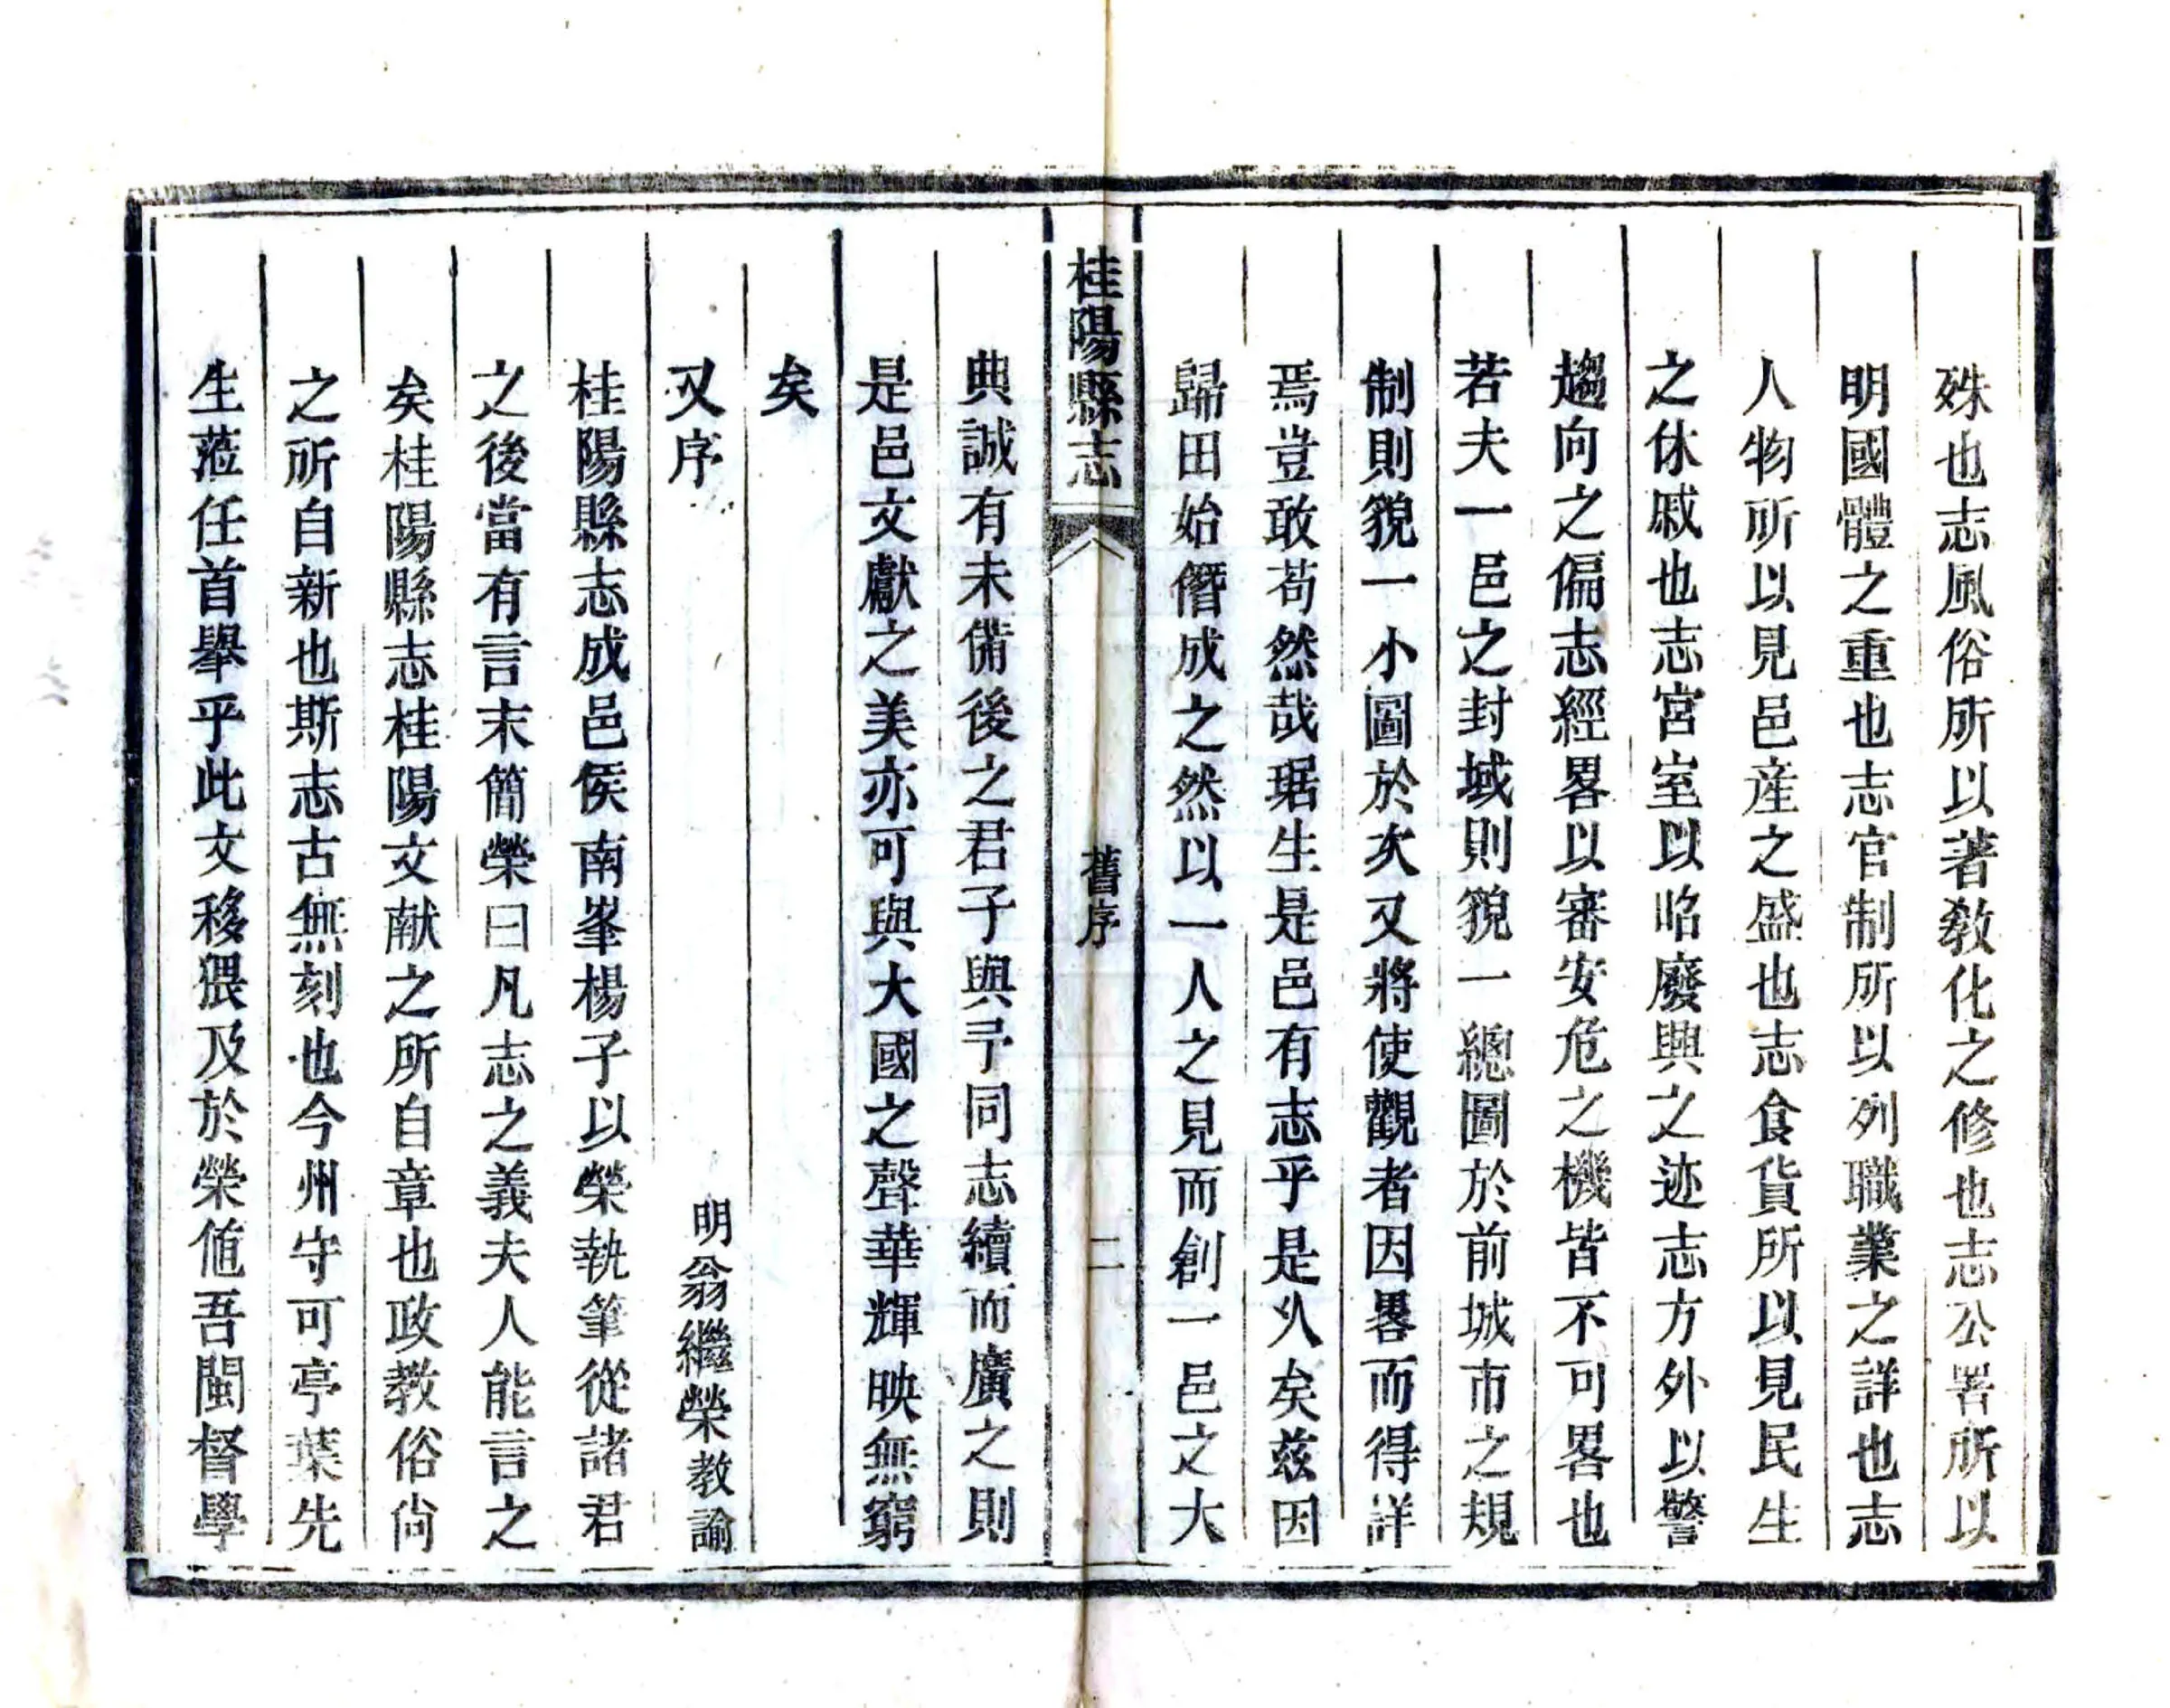 殊也志風俗所以著敎化之修也志公署所以
明國體之重也志官制所以列職業之詳也志
人物所以見邑産之盛也志食貨所以見民生
之休戚也志宮室以昭廢興之迹志方外以警
趨向之偏志經畧以審安危之機皆不可畧也
若夫一邑之封域則貌一總圖於前城市之規
制則貌一小圖於次又將使觀者因畧而得詳
焉豈敢苟然哉琚生是邑有志乎是久矣茲因
歸田始僭成之然以一人之見而創一邑之大
桂陽縣志
舊序
二
典誠有未備後之君子與予同志續而廣之則
是邑文獻之美亦可與大國之聲華輝映無窮
矣
又序
明翁繼榮教諭
桂陽縣志成邑侯南峯楊子以榮執筆從諸君
之後當有言末簡榮曰凡志之義夫人能言之
矣桂陽縣志桂陽文献之所自章也政教俗尙
之所自新也斯志古無刻也今州守可亭葉先
生蒞任首舉乎此文移猥及於榮値吾閩督學